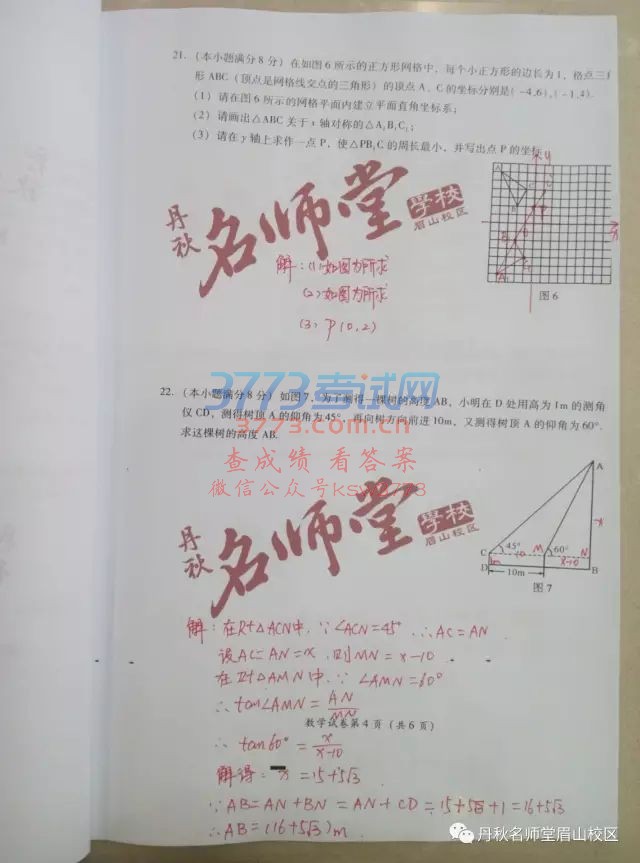 21. (本小题满分8分)在如图6所示的正方形网格中,每个小正方形的边长为1,格点三
形ABC(顶点是网格线交点的三角形)的顶点A、C的坐标分别是(-4,6),(-1,4).
(1)请在图6所示的网格平面内建立平面直角坐标系;
(2)请画出△ABC关于x轴对称的△A₁B₁C₁;
(3)请在y轴上求作一点P,使△PB₁C的周长最小,并写出点P的坐标.
丹秋 名师堂 学校
眉山校区
解:(1)如图为所求
(2)如图为所求
(3) P(0,2)
图6
3773考试网
www.3773.com.cn
22. (本小题满分8分)如图7,为了测得一棵树的高度AB,小明在D处用高为1m的测角
仪CD,测得树顶A的仰角为45°,再向树方向前进10m,又测得树顶A的仰角为60°.
求这棵树的高度AB.
查成绩 看答案
丹秋 名师堂 学校
眉山校区
A
x
C 45° 10 M 60° N
1m x-10
D 10m B
图7
解:在Rt△ACN中,∵∠ACN=45° ∴AC=AN
设AC=AN=x,则MN=x-10
在Rt△AMN中,∵∠AMN=60°
∴tan∠AMN=AN/MN
数学试卷第4页(共6页)
∴tan60°=x/x-10
解得: x=15+5√3
∵AB=AN+BN=AN+CD=15+5√3+1=16+5√3
∴AB=(16+5√3)m
丹秋名师堂眉山校区